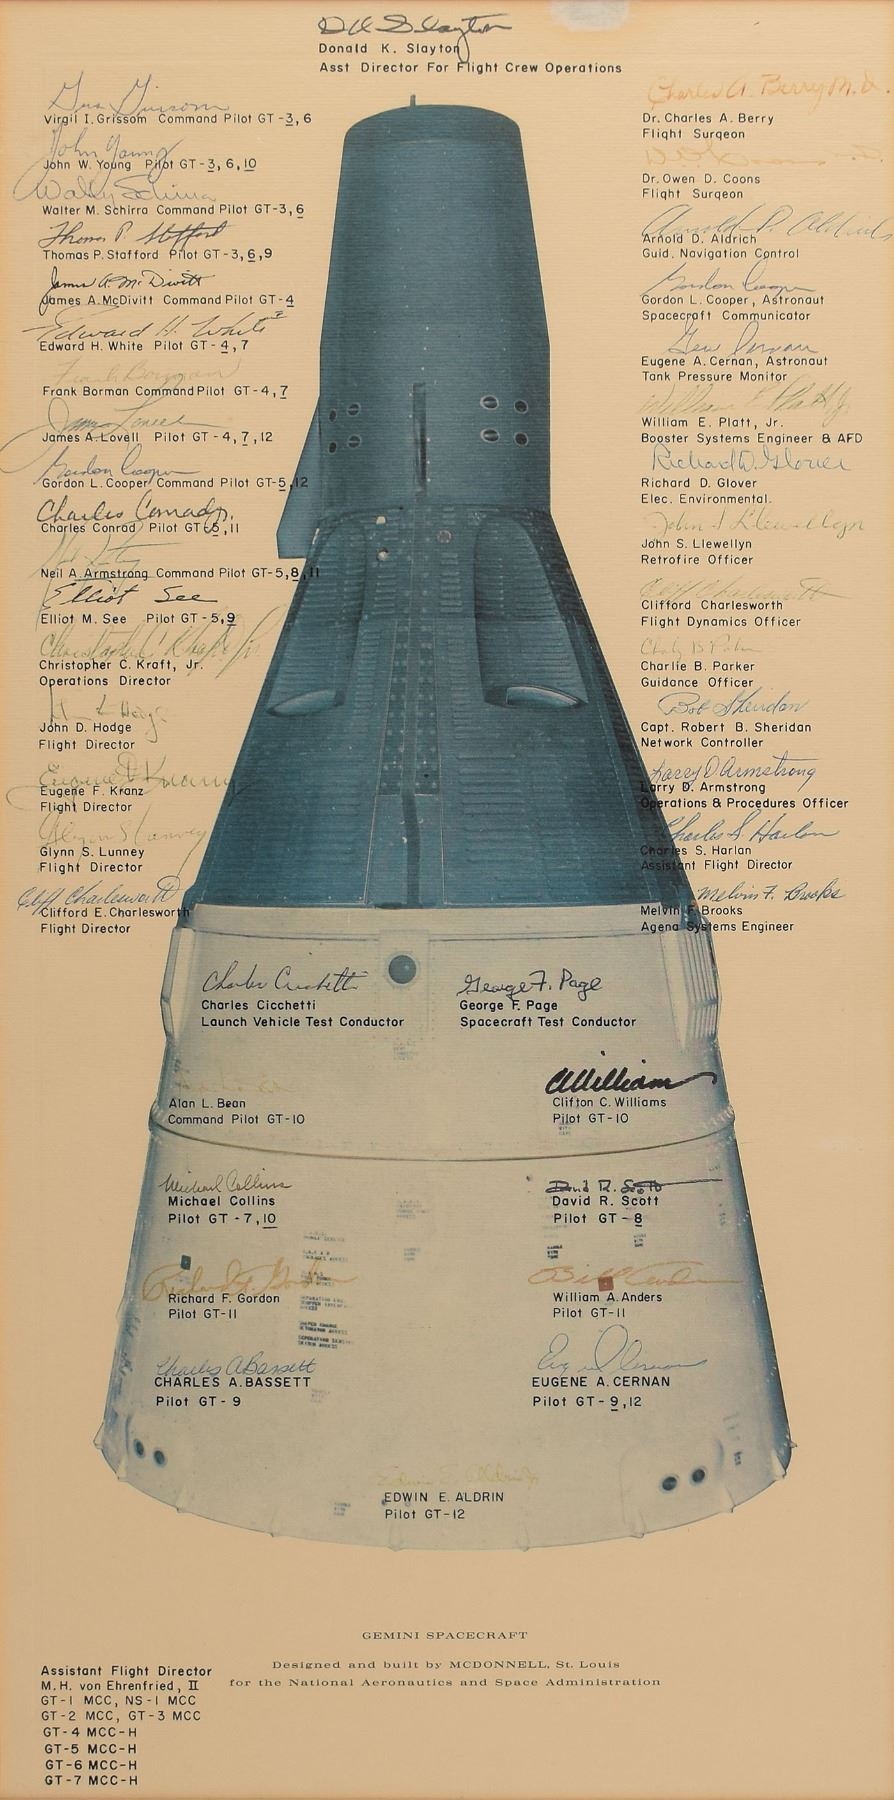 DK Slayton
Donald K. Slayton
Asst Director For Flight Crew Operations
Gus Grissom
Virgil I. Grissom Command Pilot GT-3, 6
John Young
John W. Young Pilot GT-3, 6, 10
Wally Schirra
Walter M. Schirra Command Pilot GT-3, 6
Thomas P. Stafford
Thomas P. Stafford Pilot GT-3, 6, 9
James A. McDivitt
James A. McDivitt Command Pilot GT-4
Edward H. White II
Edward H. White Pilot GT-4, 7
Frank Borman
Frank Borman Command Pilot GT-4, 7
James Lovell
James A. Lovell Pilot GT-4, 7, 12
Gordon Cooper
Gordon L. Cooper Command Pilot GT-5, 12
Charles Conrad Jr.
Charles Conrad Pilot GT-5, 11
Neil A. Armstrong Command Pilot GT-5, 8, 11
Elliot See
Elliot M. See Pilot GT-5, 9
Christopher C. Kraft, Jr.
Christopher C. Kraft, Jr.
Operations Director
John D. Hodge
John D. Hodge
Flight Director
Eugene F. Kranz
Eugene F. Kranz
Flight Director
Glynn S Lunney
Glynn S. Lunney
Flight Director
Cliff Charlesworth
Clifford E. Charlesworth
Flight Director
Charles A. Berry M.D.
Dr. Charles A. Berry
Flight Surgeon
Dr. Owen D. Coons
Flight Surgeon
Arnold D. Aldrich
Arnold D. Aldrich
Guid. Navigation Control
Gordon Cooper
Gordon L. Cooper, Astronaut
Spacecraft Communicator
Gene Cernan
Eugene A. Cernan, Astronaut
Tank Pressure Monitor
William E Platt Jr
William E. Platt, Jr.
Booster Systems Engineer & AFD
Richard D. Glover
Richard D. Glover
Elec. Environmental.
John S Llewellyn
John S. Llewellyn
Retrofire Officer
Cliff Charlesworth
Clifford Charlesworth
Flight Dynamics Officer
Charley B Parker
Charlie B. Parker
Guidance Officer
Bob Sheridan
Capt. Robert B. Sheridan
Network Controller
Larry D. Armstrong
Larry D. Armstrong
Operations & Procedures Officer
Charles S. Harlan
Charles S. Harlan
Assistant Flight Director
Melvin F. Brooks
Melvin F. Brooks
Agena Systems Engineer
Charles Cicchetti
Charles Cicchetti
Launch Vehicle Test Conductor
George F. Page
George F. Page
Spacecraft Test Conductor
Alan L. Bean
Command Pilot GT-10
CWilliams
Clifton C. Williams
Pilot GT-10
Michael Collins
Michael Collins
Pilot GT-7, 10
David R. Scott
David R. Scott
Pilot GT-8
Richard F. Gordon
Richard F. Gordon
Pilot GT-11
Bill Anders
William A. Anders
Pilot GT-11
Charles A Bassett
CHARLES A. BASSETT
Pilot GT-9
Eugene Cernan
EUGENE A. CERNAN
Pilot GT-9, 12
Edwin E. Aldrin Jr
EDWIN E. ALDRIN
Pilot GT-12
GEMINI SPACECRAFT
Designed and built by MCDONNELL, St. Louis
for the National Aeronautics and Space Administration
Assistant Flight Director
M.H. von Ehrenfried, II
GT-1 MCC, NS-1 MCC
GT-2 MCC, GT-3 MCC
GT-4 MCC-H
GT-5 MCC-H
GT-6 MCC-H
GT-7 MCC-H